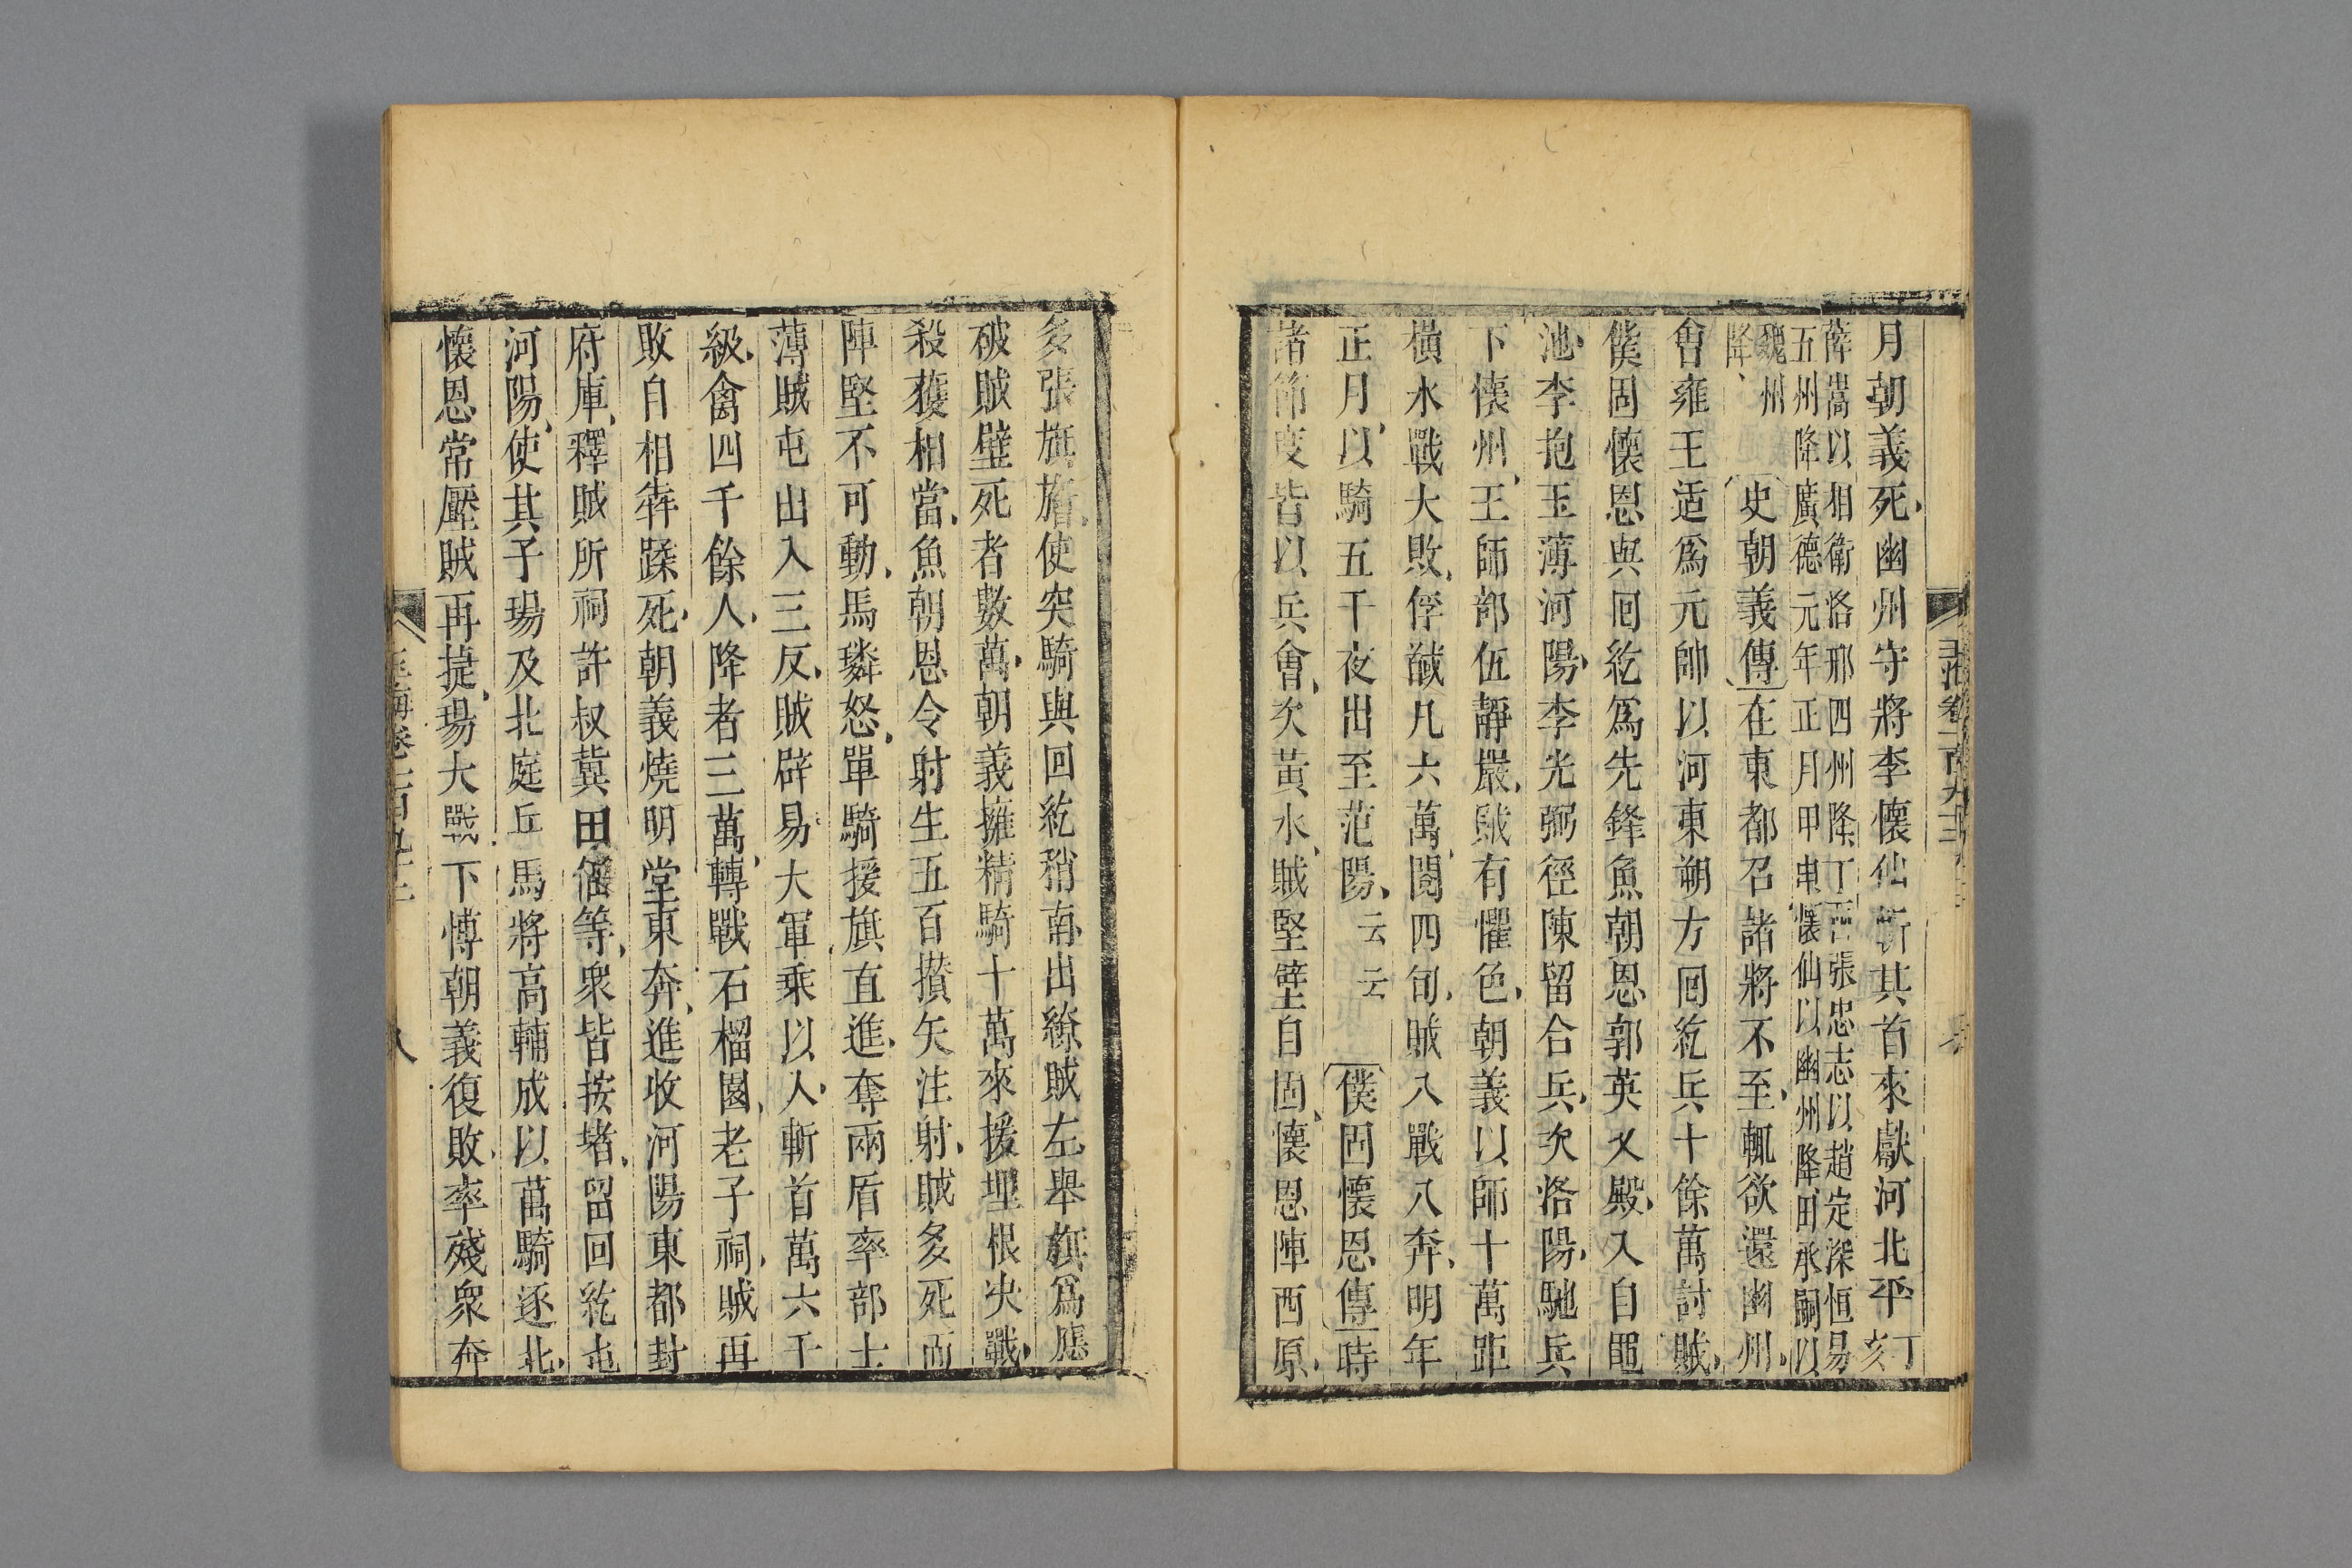 月朝義死幽州守將李懷仙斬其首來獻河北平丁亥
薛嵩以相衛洺邢四州降丁酉張忠志以趙定深恒易
五州降廣德元年正月甲申懷仙以幽州降田承嗣以
魏州
降
史朝義傳在東都召諸將不至輒欲還幽州
會雍王适爲元帥以河東朔方囘紇兵十餘萬討賊
僕固懷恩與囘紇爲先鋒魚朝恩郭英乂殿入自黽
池李抱玉薄河陽李光弼徑陳留合兵次洛陽馳兵
下懷州王師部伍靜嚴賊有懼色朝義以師十萬距
橫水戰大敗俘馘凡六萬閱四旬賊八戰八奔明年
正月以騎五千夜出至范陽云云僕固懷恩傳時
諸節度皆以兵會次黃水賊堅壁自固懷恩陣西原
多張旗旝使突騎與回紇稍南出繚賊左舉旗爲應
破賊壁死者數萬朝義擁精騎十萬來援埋根決戰
殺獲相當魚朝恩令射生五百攢矢注射賊多死而
陣堅不可動馬璘怒單騎援旗直進奪兩盾率部士
薄賊屯出入三反賊辟易大軍乘以入斬首萬六千
級禽四千餘人降者三萬轉戰石榴園老子祠賊再
敗自相犇蹂死朝義燒明堂東奔進收河陽東都封
府庫釋賊所祠許叔冀田偃等衆皆按堵留回紇屯
河陽使其子瑒及北庭兵馬將高輔成以萬騎逐北
懷恩常壓賊再捷瑒大戰下博朝義復敗率殘衆奔
八